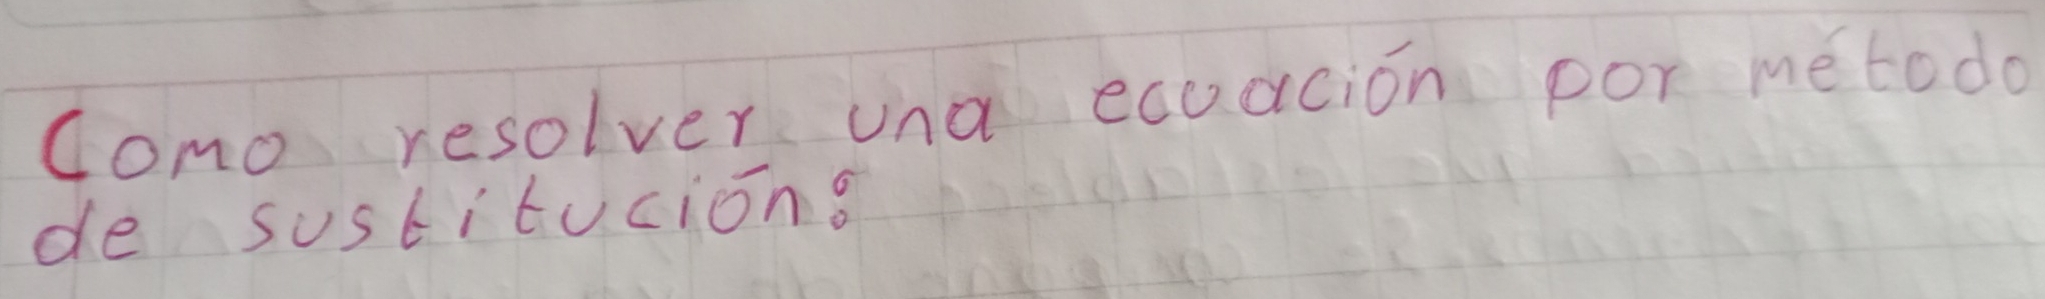 Como resolver una ecuación por método
de sustitución: